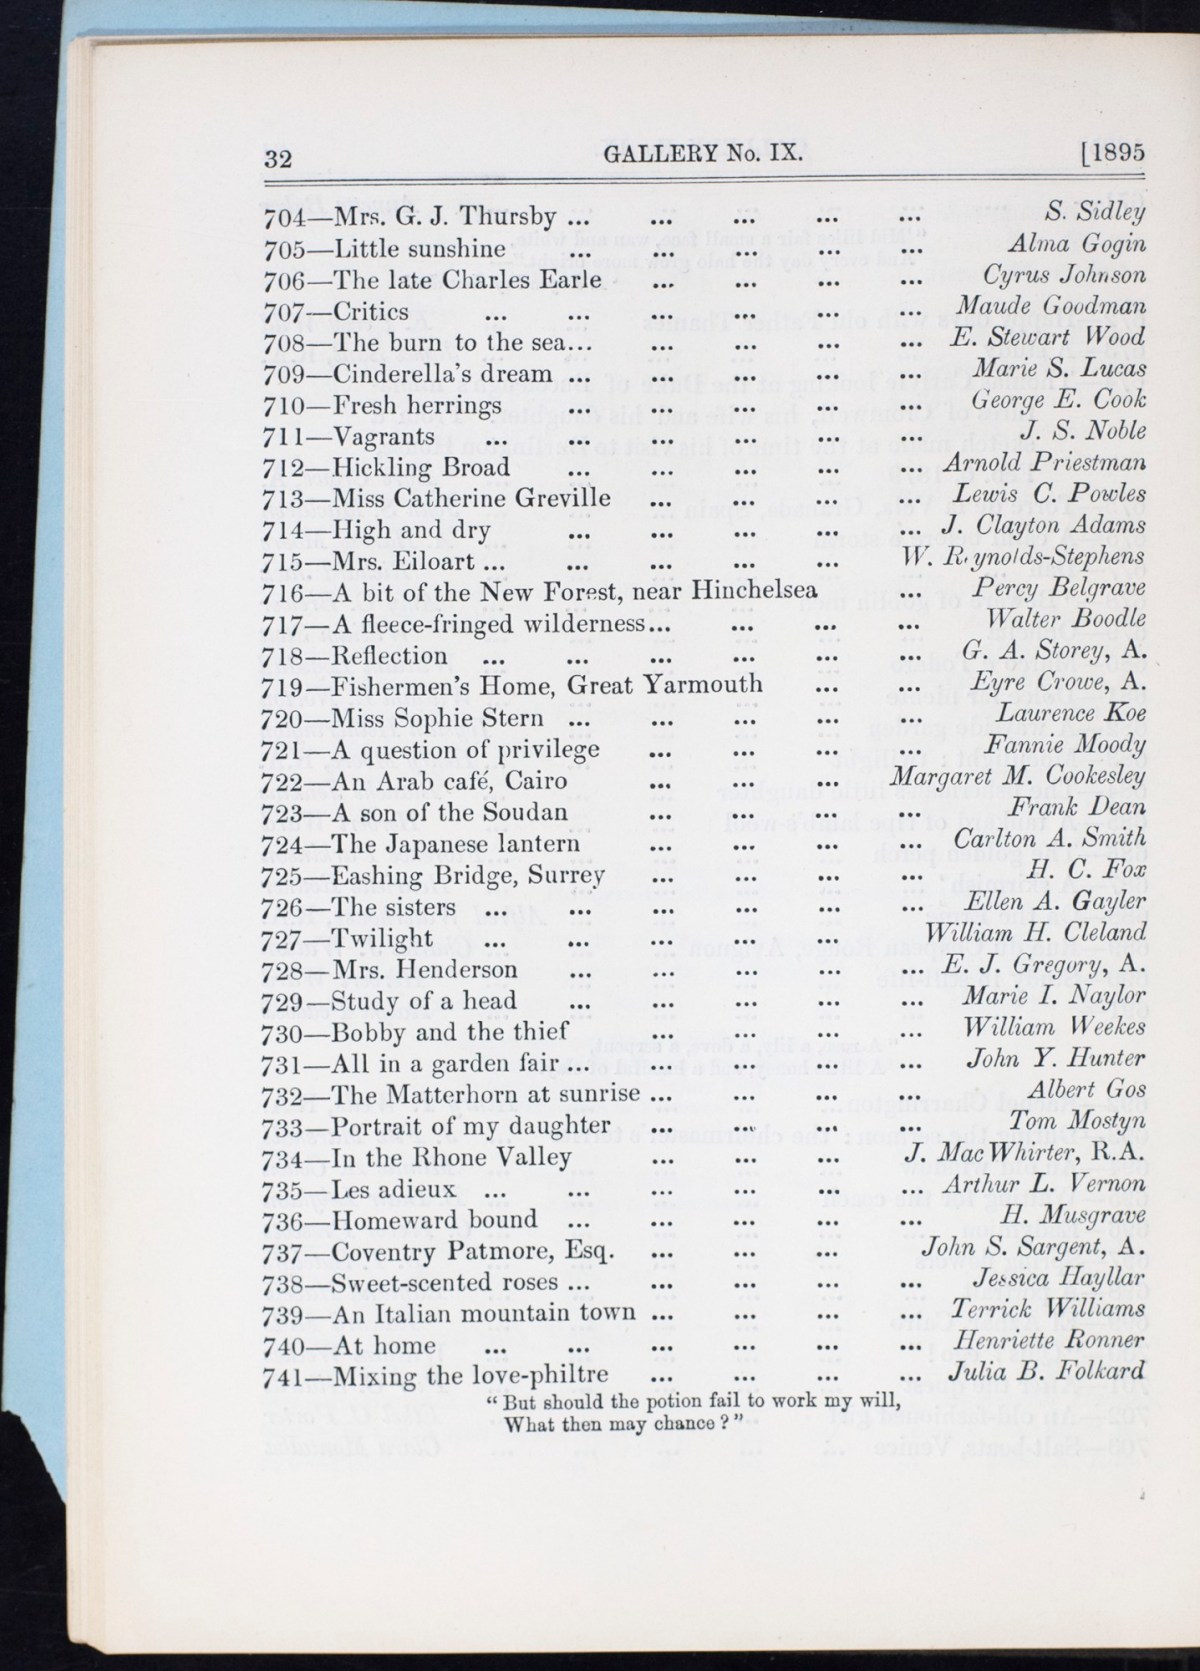 32 GALLERY No. IX. [1895
704—Mrs. G. J. Thursby ... ... ... ... ... S. Sidley
705—Little sunshine ... ... ... ... ... Alma Gogin
706—The late Charles Earle ... ... ... ... Cyrus Johnson
707—Critics ... ... ... ... ... ... Maude Goodman
708—The burn to the sea... ... ... ... ... E. Stewart Wood
709—Cinderella's dream ... ... ... ... ... Marie S. Lucas
710—Fresh herrings ... ... ... ... ... George E. Cook
711—Vagrants ... ... ... ... ... ... J. S. Noble
712—Hickling Broad ... ... ... ... ... Arnold Priestman
713—Miss Catherine Greville ... ... ... ... Lewis C. Powles
714—High and dry ... ... ... ... ... J. Clayton Adams
715—Mrs. Eiloart ... ... ... ... ... W. Reynolds-Stephens
716—A bit of the New Forest, near Hinchelsea ... Percy Belgrave
717—A fleece-fringed wilderness... ... ... ... Walter Boodle
718—Reflection ... ... ... ... ... ... G. A. Storey, A.
719—Fishermen's Home, Great Yarmouth ... ... Eyre Crowe, A.
720—Miss Sophie Stern ... ... ... ... ... Laurence Koe
721—A question of privilege ... ... ... ... Fannie Moody
722—An Arab café, Cairo ... ... ... Margaret M. Cookesley
723—A son of the Soudan ... ... ... ... Frank Dean
724—The Japanese lantern ... ... ... ... Carlton A. Smith
725—Eashing Bridge, Surrey ... ... ... ... H. C. Fox
726—The sisters ... ... ... ... ... ... Ellen A. Gayler
727—Twilight ... ... ... ... ... William H. Cleland
728—Mrs. Henderson ... ... ... ... ... E. J. Gregory, A.
729—Study of a head ... ... ... ... ... Marie I. Naylor
730—Bobby and the thief ... ... ... ... William Weekes
731—All in a garden fair... ... ... ... ... John Y. Hunter
732—The Matterhorn at sunrise ... ... ... ... Albert Gos
733—Portrait of my daughter ... ... ... ... Tom Mostyn
734—In the Rhone Valley ... ... ... J. MacWhirter, R.A.
735—Les adieux ... ... ... ... ... ... Arthur L. Vernon
736—Homeward bound ... ... ... ... ... H. Musgrave
737—Coventry Patmore, Esq. ... ... ... John S. Sargent, A.
738—Sweet-scented roses ... ... ... ... ... Jessica Hayllar
739—An Italian mountain town ... ... ... ... Terrick Williams
740—At home ... ... ... ... ... ... Henriette Ronner
741—Mixing the love-philtre ... ... ... ... Julia B. Folkard
"But should the potion fail to work my will,
What then may chance?"